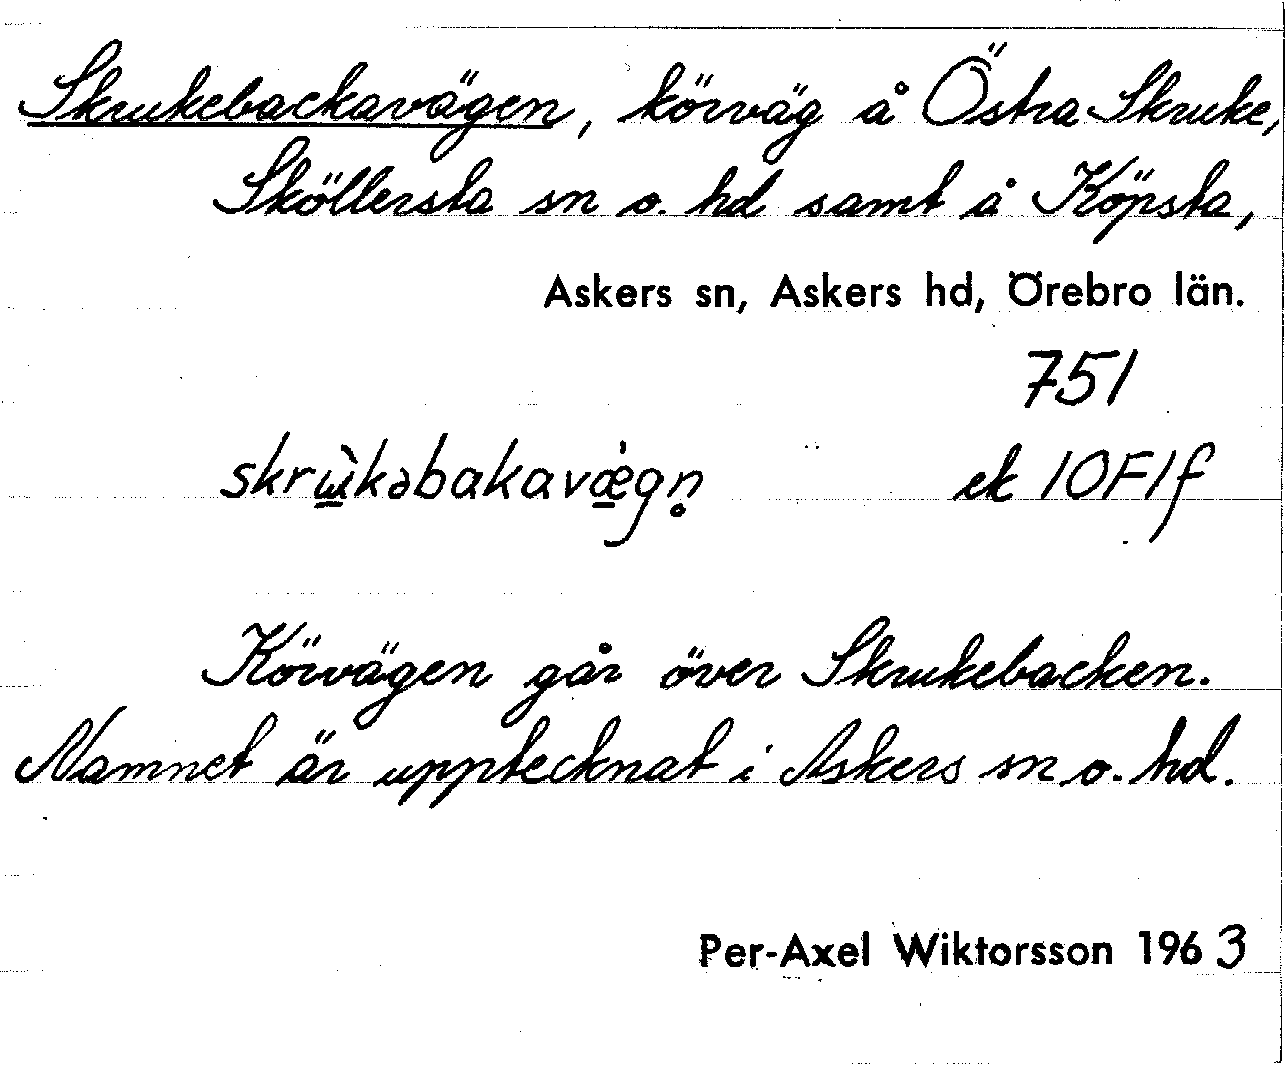 Skrukebackavägen, körväg å Östra Skruke,
Sköllersta sn o. hd samt å Köpsta,
Askers sn, Askers hd, Örebro län.
751
skrɯ̀kəbakavæ̀gn̥ ek 10F1f
Körvägen går över Skrukebacken.
Namnet är upptecknat i Askers sn o. hd.
Per-Axel Wiktorsson 1963